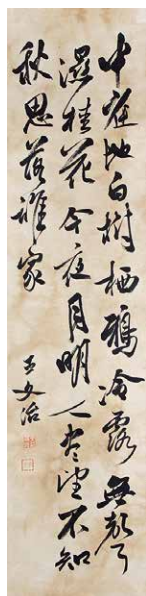 中庭地白樹栖鴉冷露無聲
濕桂花今夜月明人盡望不知
秋思落誰家
王文治